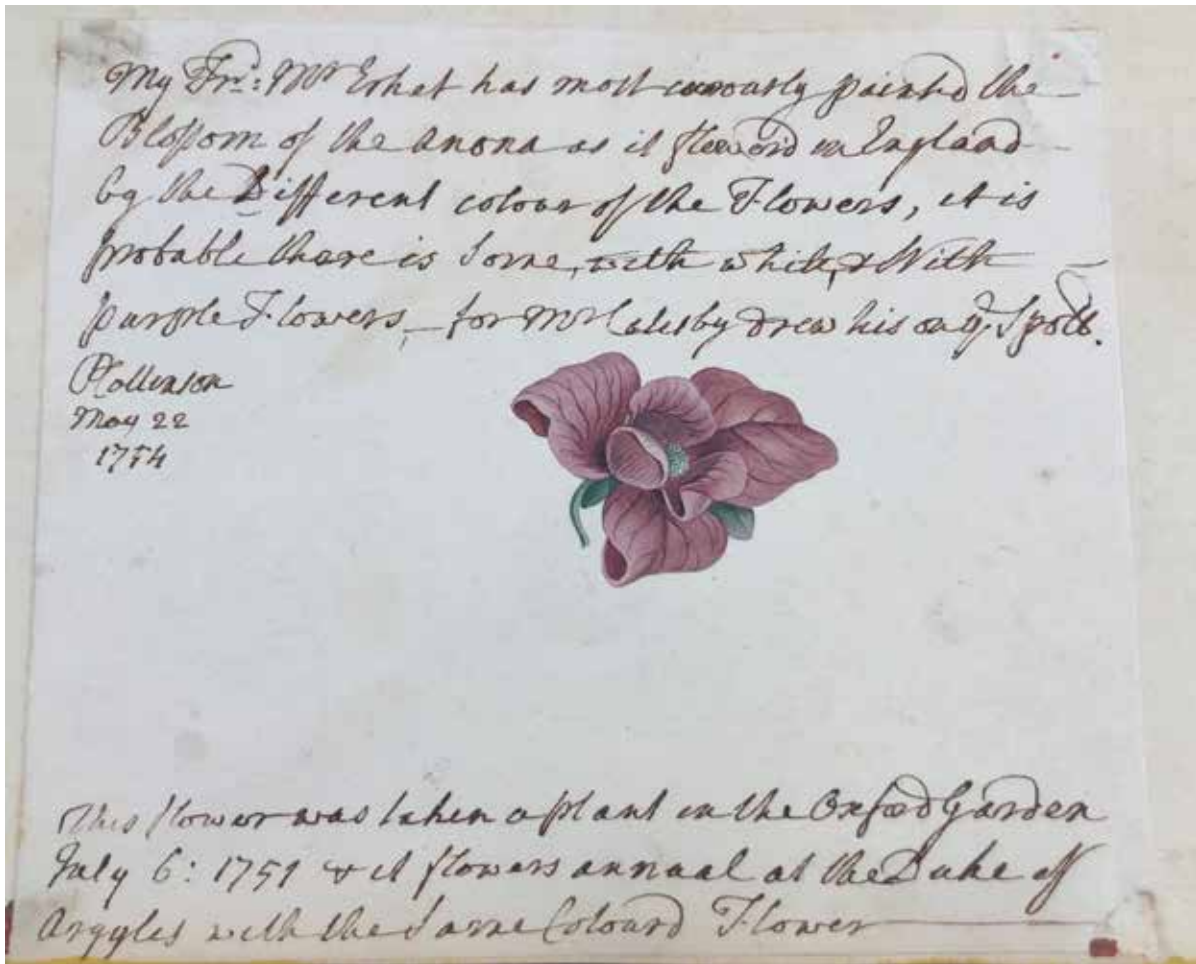 My Frd: Mr Ehret has most curiously painted the
Blossom of the Anona as it flowerd in England
by the Different colour of the Flowers, it is
probable there is some, with white, & With
purple Flowers, – for Mr Catesby drew his on ye Spott.
PCollinson
May 22
1754
This flower was taken a plant in the Oxford Garden
July 6: 1751 & it flowers annual at the Duke of
Argyles with the same Colourd Flower